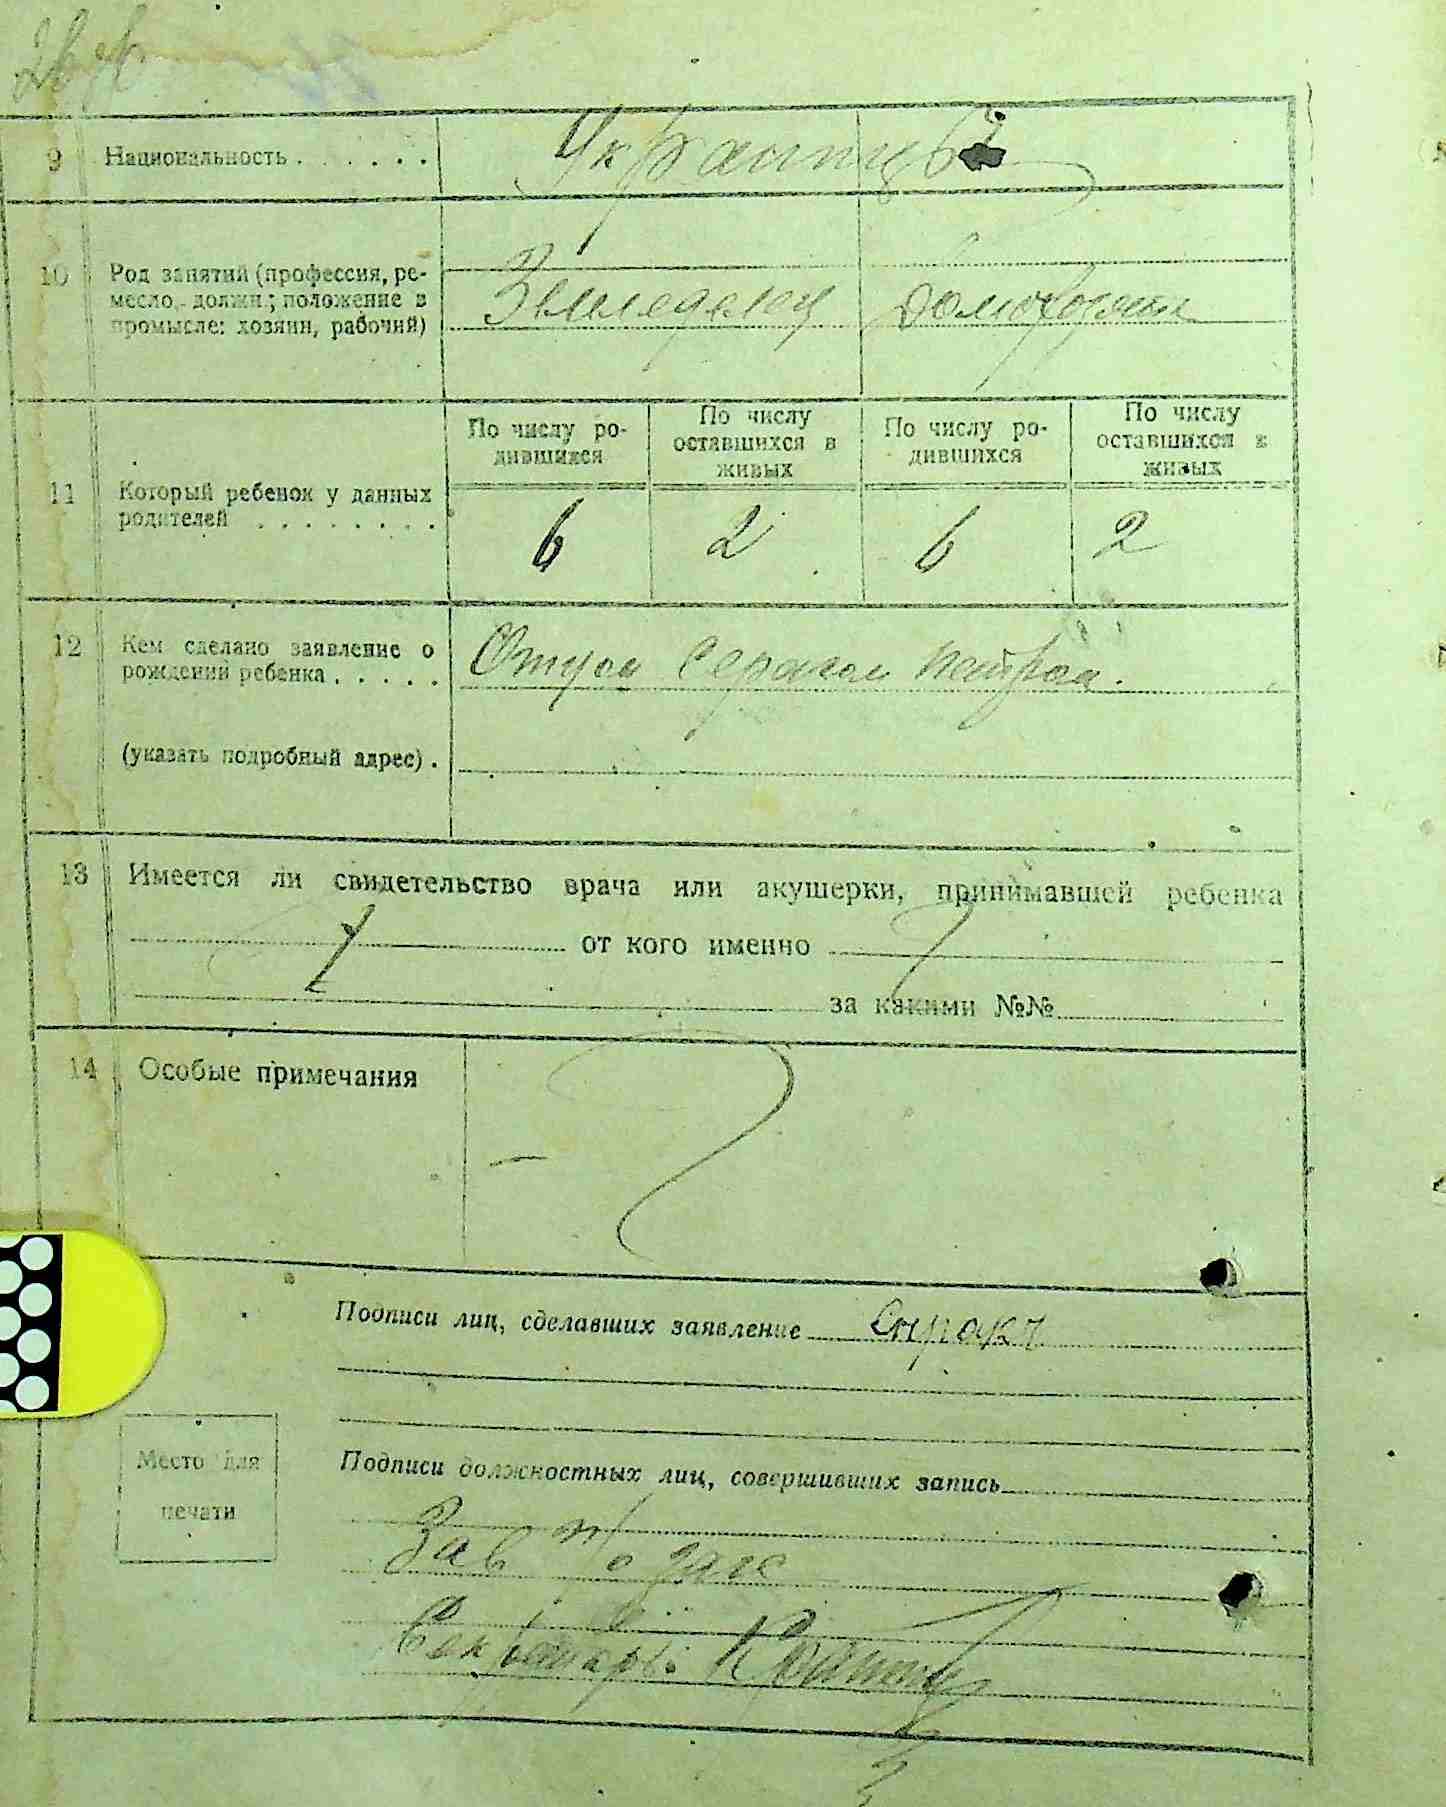 9 Национальность . . . . . . Украинцы
10 Род занятий (профессия, ре-
месло, должн.; положение в
промысле: хозяин, рабочий)
Земледелец
11 Который ребенок у данных
родителей . . . . . . . .
По числу ро-
дившихся
По числу
оставшихся в
живых
По числу ро-
дившихся
По числу
оставшихся в
живых
6 2 6 2
12 Кем сделано заявление о
рождений ребенка . . . . .
Отцом
(указать подробный адрес) .
13 Имеется ли свидетельство врача или акушерки, принимавшей ребенка
от кого именно
за какими №№
14 Особые примечания
–
Подписи лиц, сделавших заявление
Место для
печати
Подписи должностных лиц, совершивших запись
Зав
Секретарь